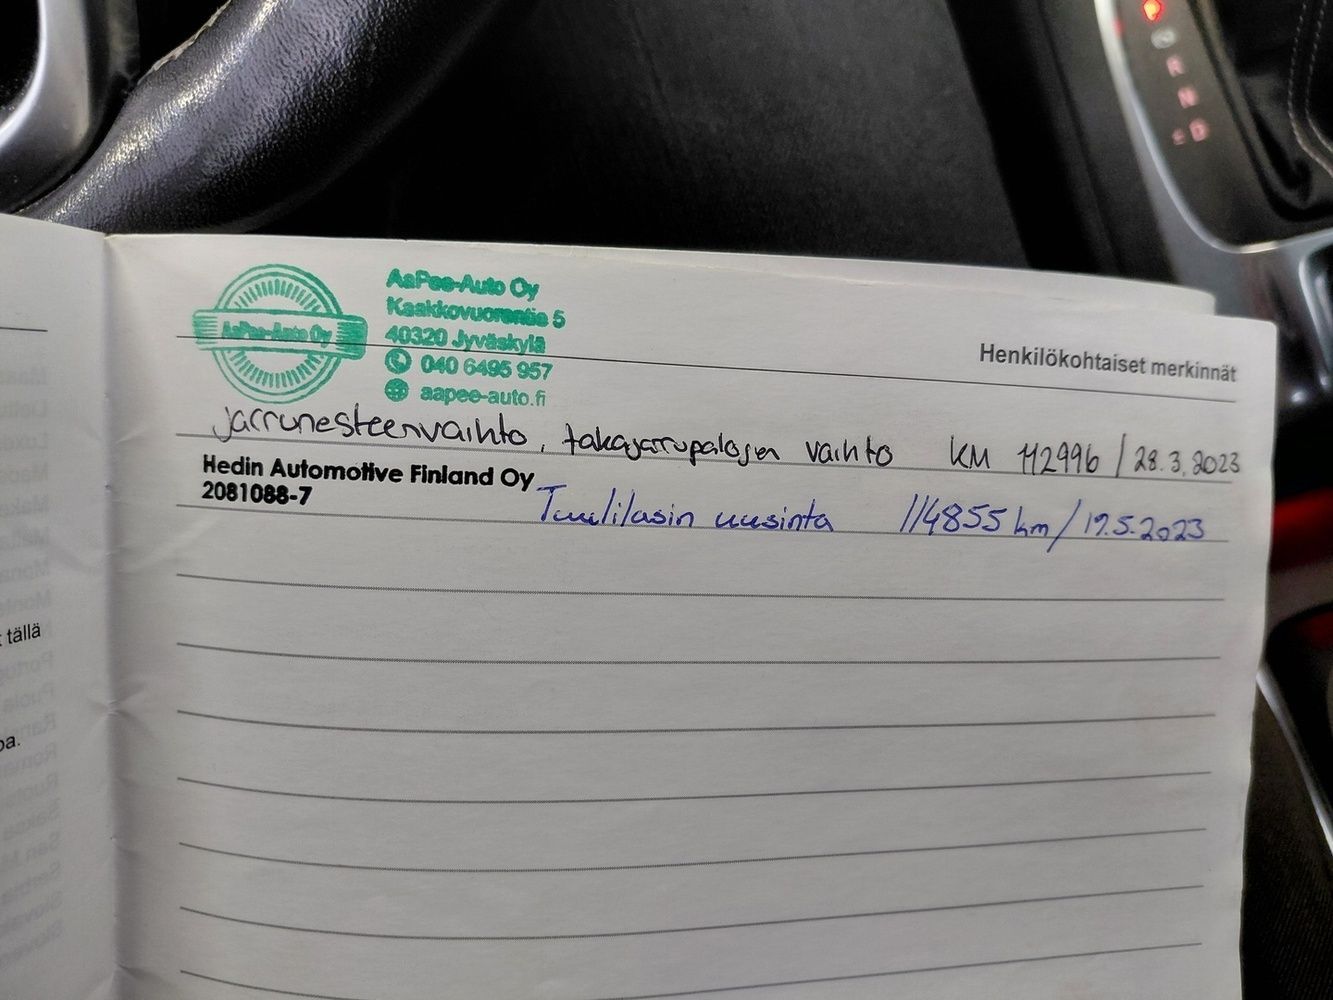 P
R
N
D
AaPee-Auto Oy
AaPee-Auto Oy
Kaakkovuorentie 5
40320 Jyväskylä
040 6495 957
aapee-auto.fi
Henkilökohtaiset merkinnät
jarrunesteenvaihto, takajarrupalojen vaihto KM 112996 / 28.3.2023
Hedin Automotive Finland Oy
2081088-7
Tuulilasin uusinta 114855 km / 19.5.2023
tällä
pa.